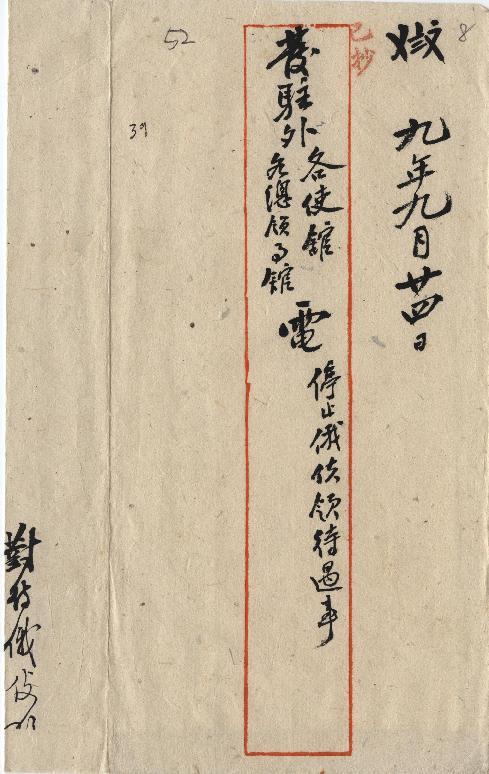 8
九年九月廿四日
已抄
發駐外各使館
各總領事館
電
停止俄使領待遇事
52
39
對待俄使